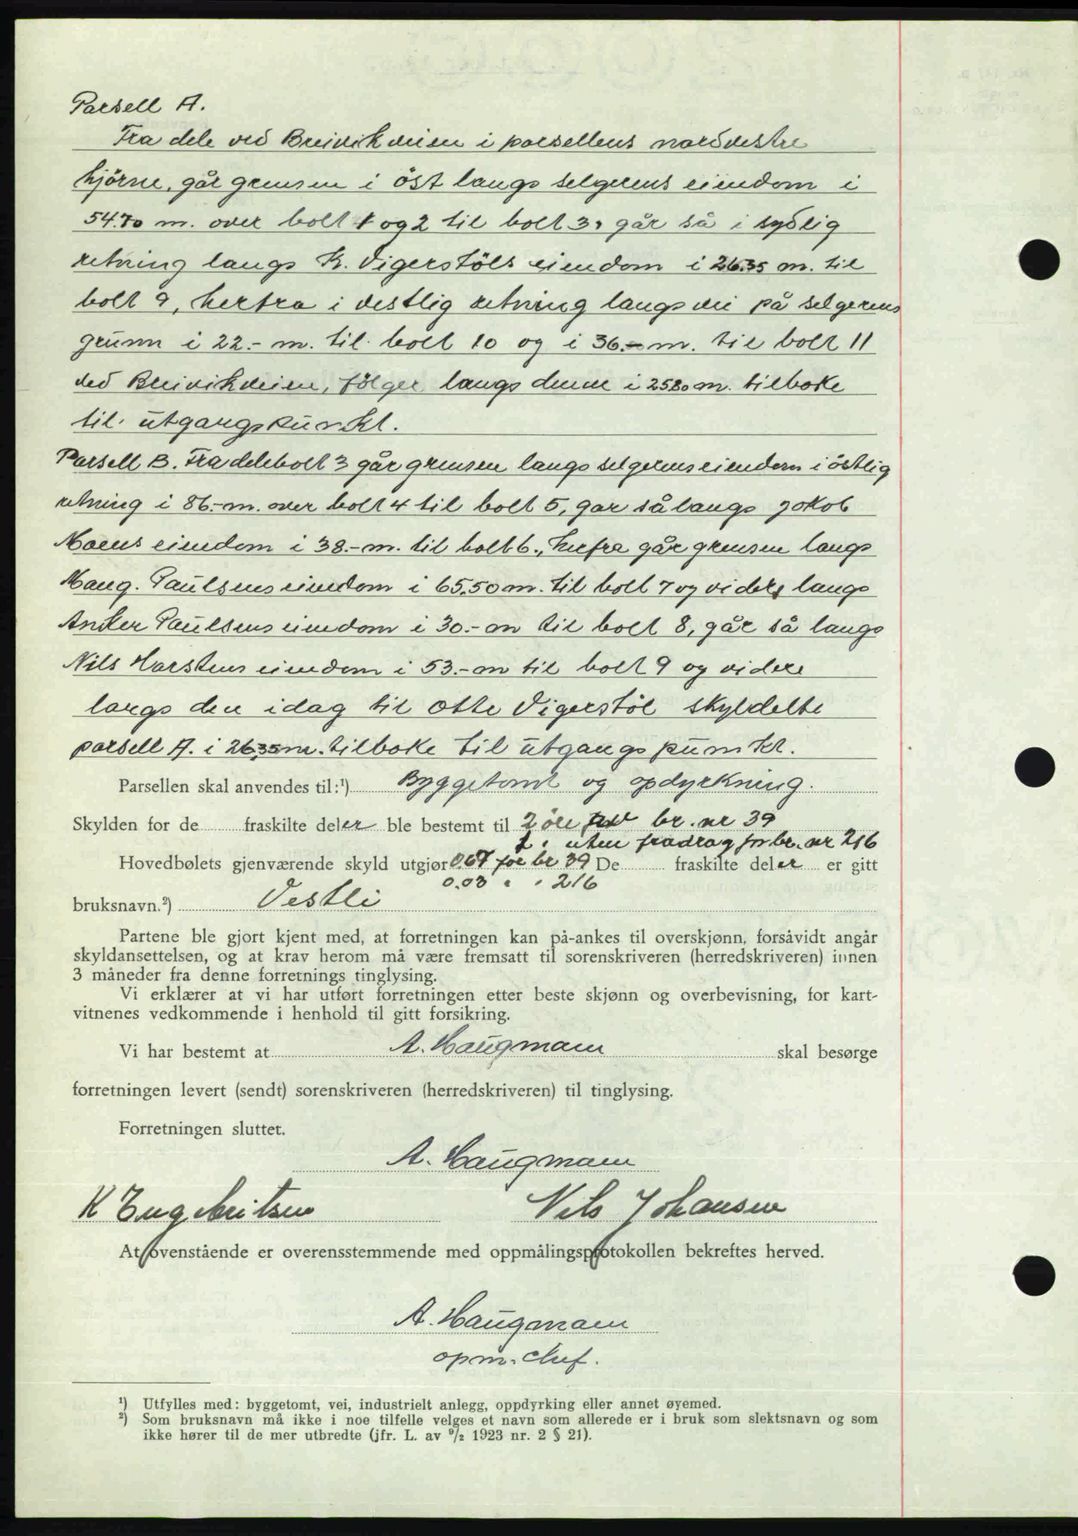 Parsell A.
Fra dele ved Breivikveien i parsellens nordvestre
hjörne, går grensen i öst langs selgerens eiendom i
54.70 m. over bolt 1 og 2 til bolt 3, går så i sydlig
retning langs K. Vigerstöls eiendom i 26.35 m. til
bolt 9, herfra i vestlig retning langs vei på selgerens
grunn i 22.- m. til bolt 10 og i 36.- m. til bolt 11
ved Breivikveien, fölger langs denne i 25.80 m. tilbake
til utgangspunkt.
Parsell B. Fra delebolt 3 går grensen langs selgerens eiendom i östlig
retning i 86.-m. over bolt 4 til bolt 5, går så langs Jakob
Moens eiendom i 38.-m. til bolt 6., herfra går grensen langs
Mang. Paulsens eiendom i 65.50 m. til bolt 7 og videre langs
Anker Paulsens eiendom i 30.- m til bolt 8, går så langs
Nils Karstens eiendom i 53.-m til bolt 9 og videre
langs den idag til Otte Vigerstöl skyldelte
parsell A. i 26.35 m. tilbake til utgangspunkt.
Parsellen skal anvendes til:¹) Byggetomt og opdyrkning.
Skylden for de fraskilte deler ble bestemt til 2 öre for br. nr 39
1 " uten fradrag for br. nr 216
Hovedbølets gjenværende skyld utgjør 0.67 for br 39 De fraskilte deler er gitt
0.03 " " 216
bruksnavn.²) Vestli
Partene ble gjort kjent med, at forretningen kan på-ankes til overskjønn, forsåvidt angår
skyldansettelsen, og at krav herom må være fremsatt til sorenskriveren (herredskriveren) innen
3 måneder fra denne forretnings tinglysing.
Vi erklærer at vi har utført forretningen etter beste skjønn og overbevisning, for kart-
vitnenes vedkommende i henhold til gitt forsikring.
Vi har bestemt at A. Haugmam skal besørge
forretningen levert (sendt) sorenskriveren (herredskriveren) til tinglysing.
Forretningen sluttet.
A. Haugmam
K Engebritsen Nils Johansen
At ovenstående er overensstemmende med oppmålingsprotokollen bekreftes herved.
A. Haugmam
opm. chef.
¹) Utfylles med: byggetomt, vei, industrielt anlegg, oppdyrking eller annet øyemed.
²) Som bruksnavn må ikke i noe tilfelle velges et navn som allerede er i bruk som slektsnavn og som
ikke hører til de mer utbredte (jfr. L. av ⁹/₂ 1923 nr. 2 § 21).